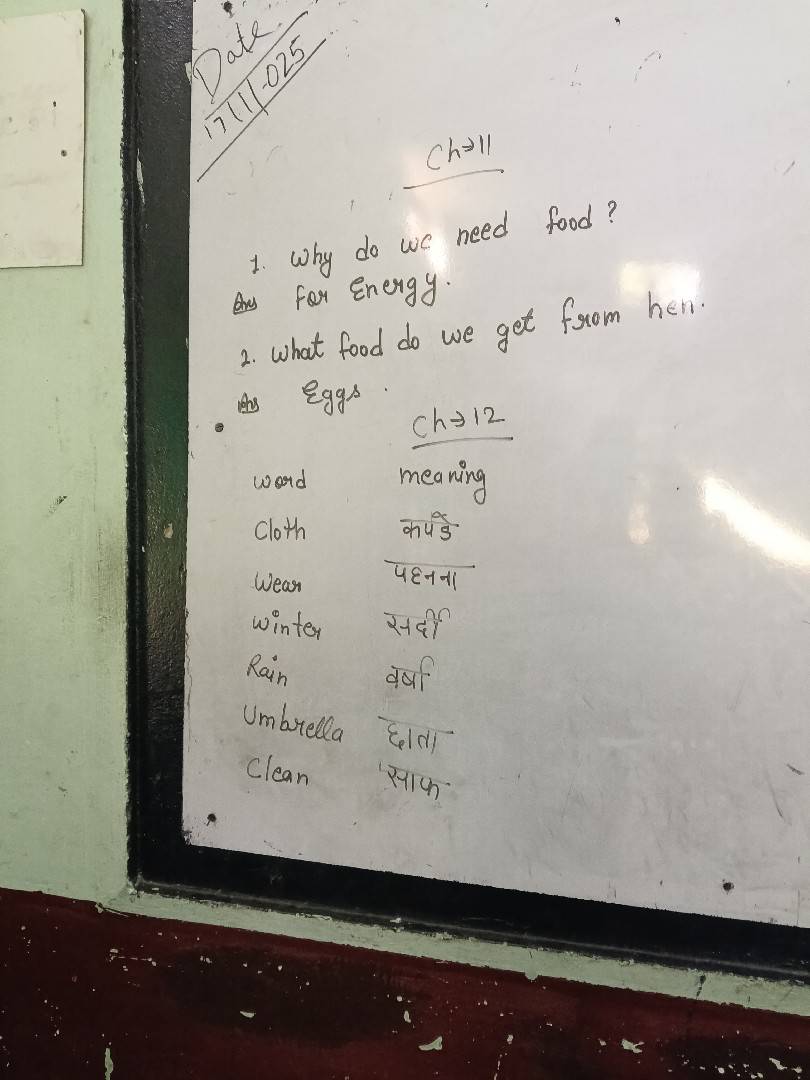 Date
17/11/-025
Ch→11
1. Why do we need food?
Ans for Energy.
2. What food do we get from hen.
Ans Eggs.
Ch→12
word meaning
Cloth कपडे
Wear पहनना
Winter सर्दी
Rain वर्षा
Umbrella छाता
Clean साफ